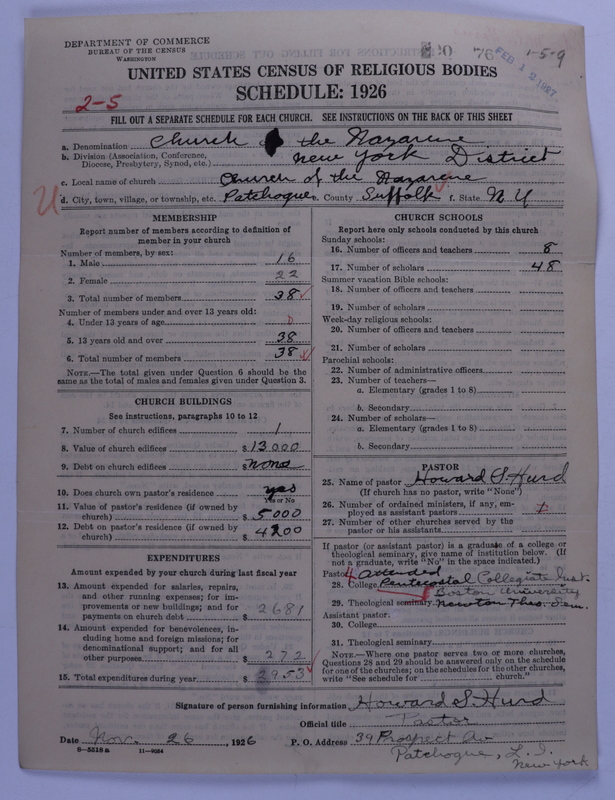 DEPARTMENT OF COMMERCE
BUREAU OF THE CENSUS
WASHINGTON
76
FEB 12 1927
1-5-9
UNITED STATES CENSUS OF RELIGIOUS BODIES
SCHEDULE: 1926
2-5
FILL OUT A SEPARATE SCHEDULE FOR EACH CHURCH. SEE INSTRUCTIONS ON THE BACK OF THIS SHEET
a. Denomination Church of the Nazarene
b. Division (Association, Conference, Diocese, Presbytery, Synod, etc.) New York District
c. Local name of church Church of the Nazarene
U
d. City, town, village, or township, etc. Patchogue e. County Suffolk f. State N Y
MEMBERSHIP
Report number of members according to definition of
member in your church
Number of members, by sex:
1. Male 16
2. Female 22
3. Total number of members 38
Number of members under and over 13 years old:
4. Under 13 years of age 0
5. 13 years old and over 38
6. Total number of members 38
NOTE.—The total given under Question 6 should be
same as the total of males and females given under Question 3.
CHURCH BUILDINGS
See instructions, paragraphs 10 to 12
7. Number of church edifices 1
8. Value of church edifices $ 13000
9. Debt on church edifices $ none
10. Does church own pastor's residence yes
Yes or No
11. Value of pastor's residence (if owned by
church) $ 5000
12. Debt on pastor's residence (if owned by
church) $ 4200
EXPENDITURES
Amount expended by your church during last fiscal year
13. Amount expended for salaries, repairs,
and other running expenses; for im-
provements or new buildings; and for
payments on church debt $ 2681
14. Amount expended for benevolences, in-
cluding home and foreign missions; for
denominational support; and for all
other purposes $ 272
15. Total expenditures during year $ 2953
CHURCH SCHOOLS
Report here only schools conducted by this church
Sunday schools:
16. Number of officers and teachers 8
17. Number of scholars 48
Summer vacation Bible schools:
18. Number of officers and teachers
19. Number of scholars
Week-day religious schools:
20. Number of officers and teachers
21. Number of scholars
Parochial schools:
22. Number of administrative officers
23. Number of teachers—
a. Elementary (grades 1 to 8)
b. Secondary
24. Number of scholars—
a. Elementary (grades 1 to 8)
b. Secondary
PASTOR
25. Name of pastor Howard S. Hurd
(If church has no pastor, write "None")
26. Number of ordained ministers, if any, em-
ployed as assistant pastors
27. Number of other churches served by the
pastor or his assistants
If pastor (or assistant pastor) is a graduate of a college or
theological seminary, give name of institution below. (If
not a graduate, write "No" in the space indicated.)
Pastor: attended
28. College Pentecostal Collegiate Inst.
Boston University
29. Theological seminary Newton Theo. Sem.
Assistant pastor:
30. College
31. Theological seminary
NOTE.—Where one pastor serves two or more churches,
Questions 28 and 29 should be answered only on the schedule
for one of the churches; on the schedules for the other churches,
write "See schedule for church."
Signature of person furnishing information Howard S. Hurd
Official title Pastor
Date Nov. 26, 1926 P. O. Address 39 Prospect Av
6-5518a 11-9054
Patchogue, L. I.
New York